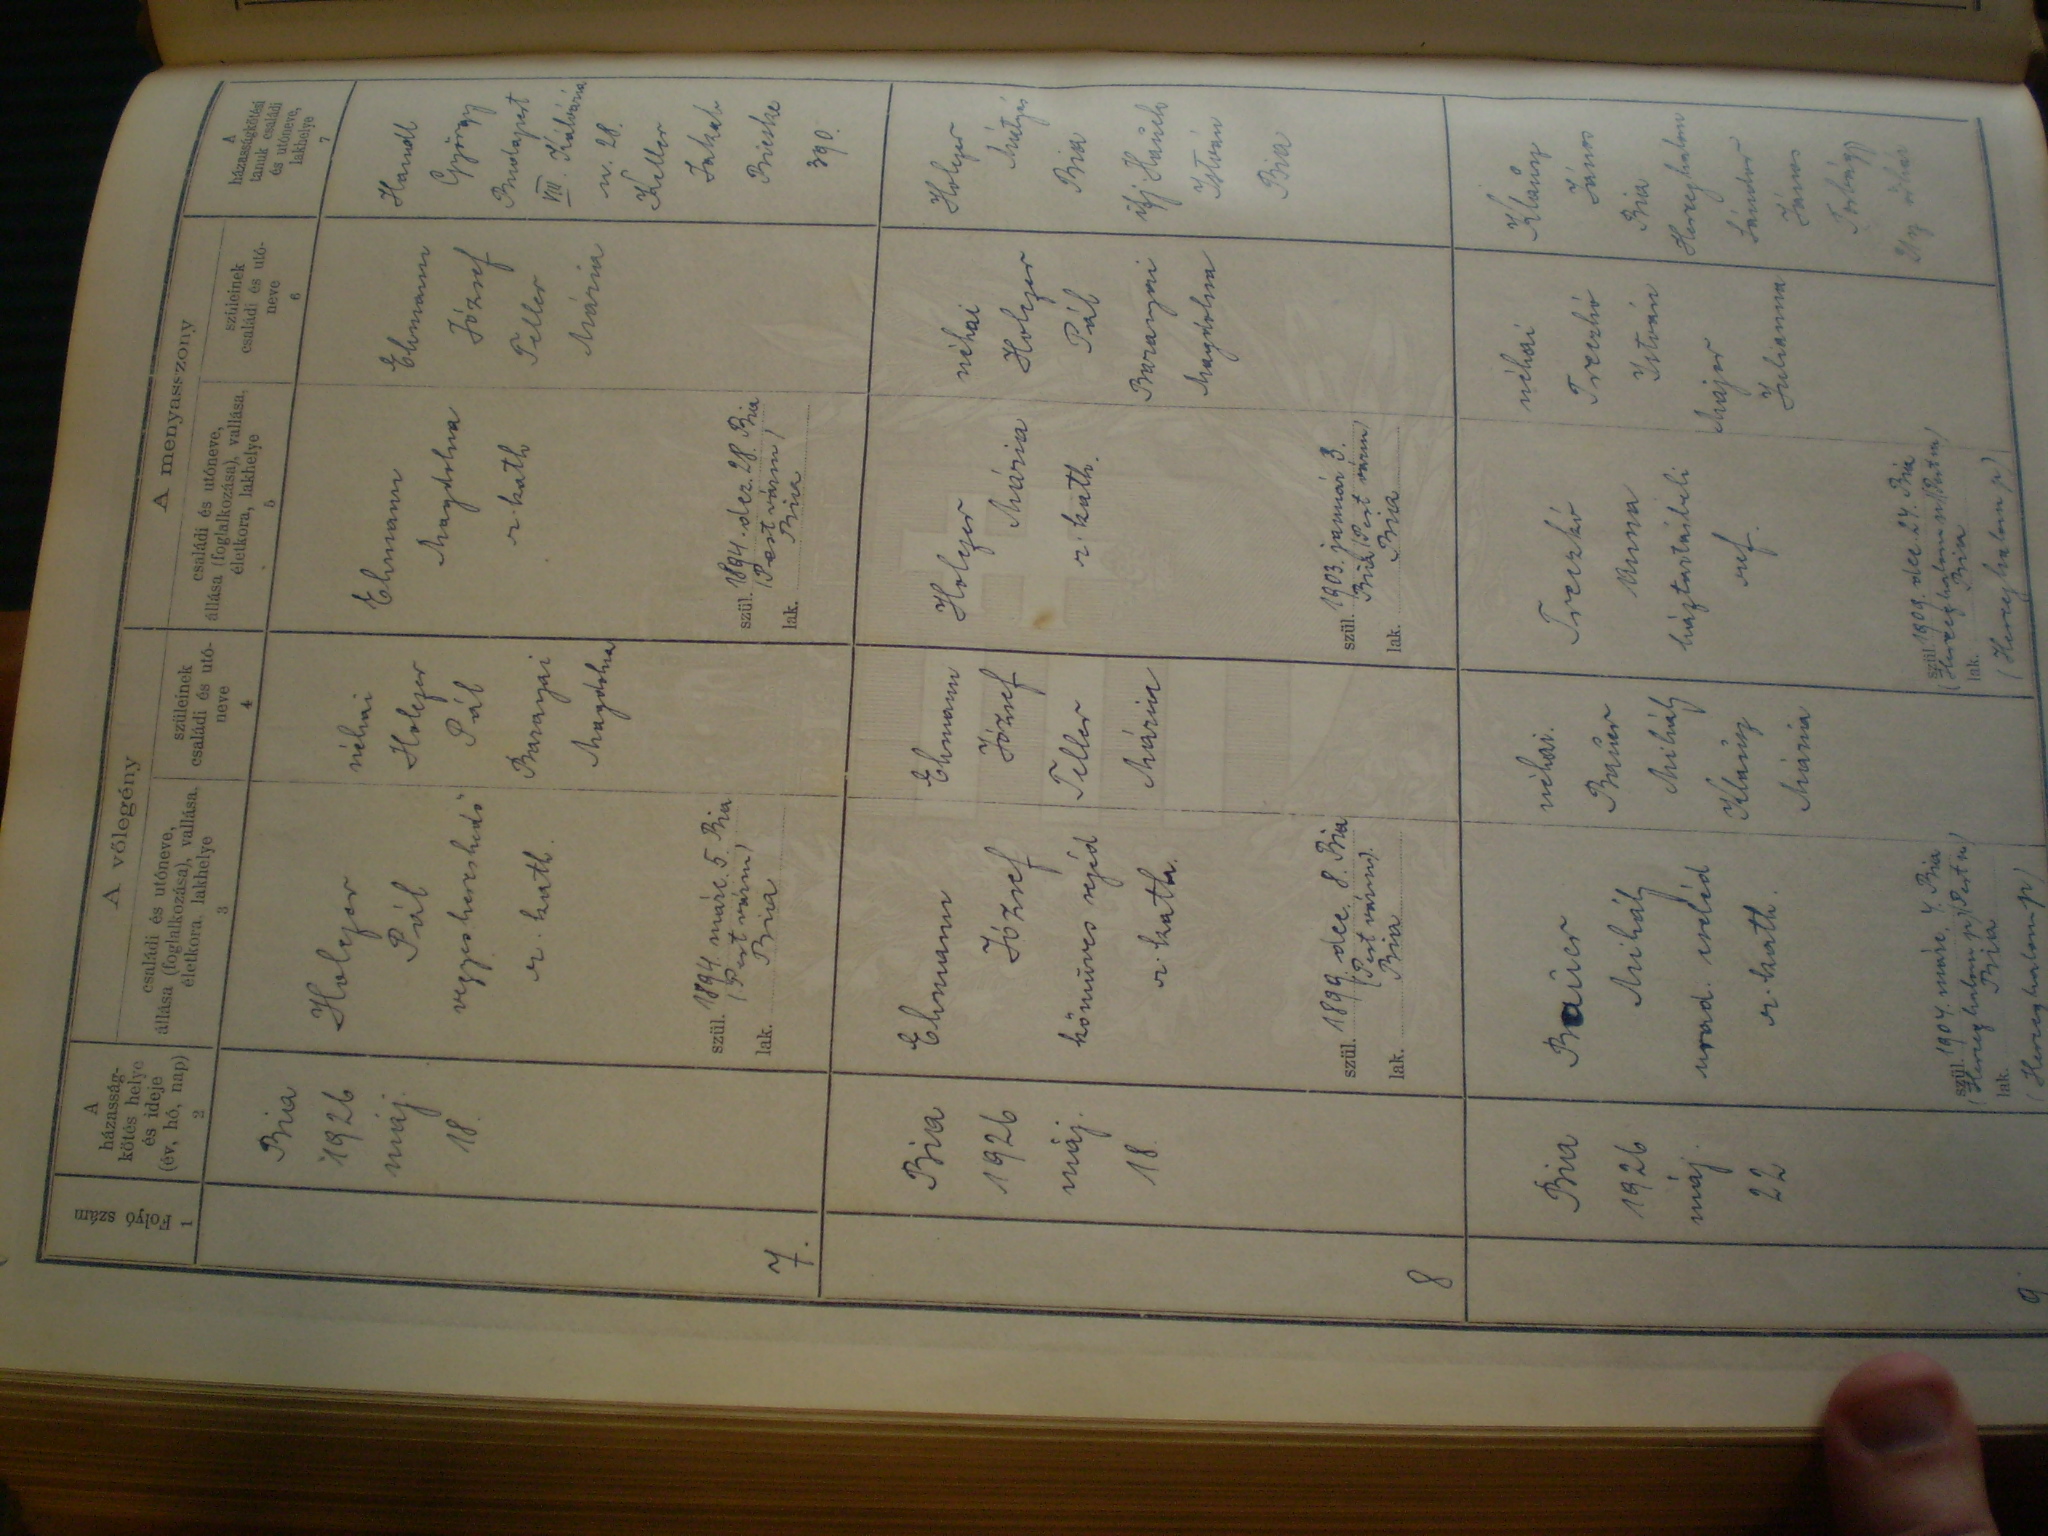 Folyó szám
1
A
házasság-
kötés helye
és ideje
(év, hó, nap)
2
A vőlegény
családi és utóneve,
állása (foglalkozása), vallása,
életkora, lakhelye
3
szüleinek
családi és utó-
neve
4
A menyasszony
családi és utóneve,
állása (foglalkozása), vallása,
életkora, lakhelye
5
szüleinek
családi és utó-
neve
6
A
házasságkötési
tanuk családi
és utóneve,
lakhelye
7
7.
Bia
1926
máj.
18.
Holczer
Pál
vegyeskereskedő
r. kath.
szül. 1894. márc. 5. Bia
(Pest várm)
lak. Bia
néhai
Holczer
Pál
Baranyai
Magdolna
Ehmann
Magdolna
r. kath
szül. 1894. dez. 28. Bia
(Pest várm)
lak. Bia
Ehmann
József
Teller
Mária
Handl
György
Budapest
VIII. Kálvária
u. 28.
Keller
Jakab
Bicske
390.
8
Bia
1926
máj.
18
Ehmann
József
kőműves segéd
r. kath.
szül. 1899. dec. 8. Bia
(Pest várm).
lak. Bia
Ehmann
József
Teller
Mária
Holczer
Mária
r. kath.
szül. 1903. január 3.
Bia (Pest várm)
lak. Bia
néhai
Holczer
Pál
Baranyai
Magdolna
Holczer
Mátyás
Bia
ifj Hauck
István
Bia
9
Bia
1926
máj.
22
Bauer
Mihály
urad. cseléd
r. kath.
szül. 1904. márc. 4. Bia
(Herceghalom p) (Pest v)
lak. Bia
(Herceghalom p)
néhai.
Bauer
Mihály
Mária
Treczkó
Anna
háztartásbeli
ref.
szül. 1909. dec. 24. Bia
lak. Bia
(Herceghalom p)
néhai
Treczkó
István
Májer
Julianna
János
Bia
Herceghalom
Sándor
János
Torbágy